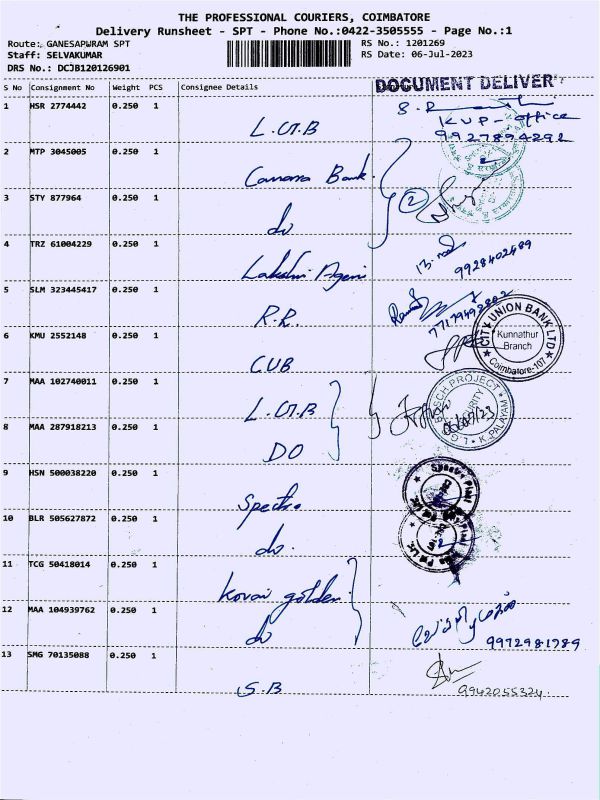 THE PROFESSIONAL COURIERS, COIMBATORE
Delivery Runsheet - SPT - Phone No.:0422-3505555 - Page No.:1
Route: GANESAPWRAM SPT
RS No.: 1201269
Staff: SELVAKUMAR
RS Date: 06-Jul-2023
DRS No.: DCJB120126901
DOCUMENT DELIVER
S No Consignment No Weight PCS Consignee Details
1 HSR 2774442 0.250 1
KVP-office
9927894292
2 MTP 3045005 0.250 1 Canara Bank
3 STY 877964 0.250 1 do
2
4 TRZ 61004229 0.250 1 Lakshmi Ageni
9928402489
5 SLM 323445417 0.250 1 R.R.
6 KMU 2552148 0.250 1 CUB
CITY UNION BANK LTD
Kunnathur
Branch
Coimbatore-107
7 MAA 102740011 0.250 1
PROJECT
K. PALAYAM
8 MAA 287918213 0.250 1 DO
9 HSN 500038220 0.250 1 Spectra
10 BLR 505627872 0.250 1 do.
11 TCG 50418014 0.250 1 Kovai golden
12 MAA 104939762 0.250 1 do
9972981789
13 SMG 70135088 0.250 1 S.B
9942055324